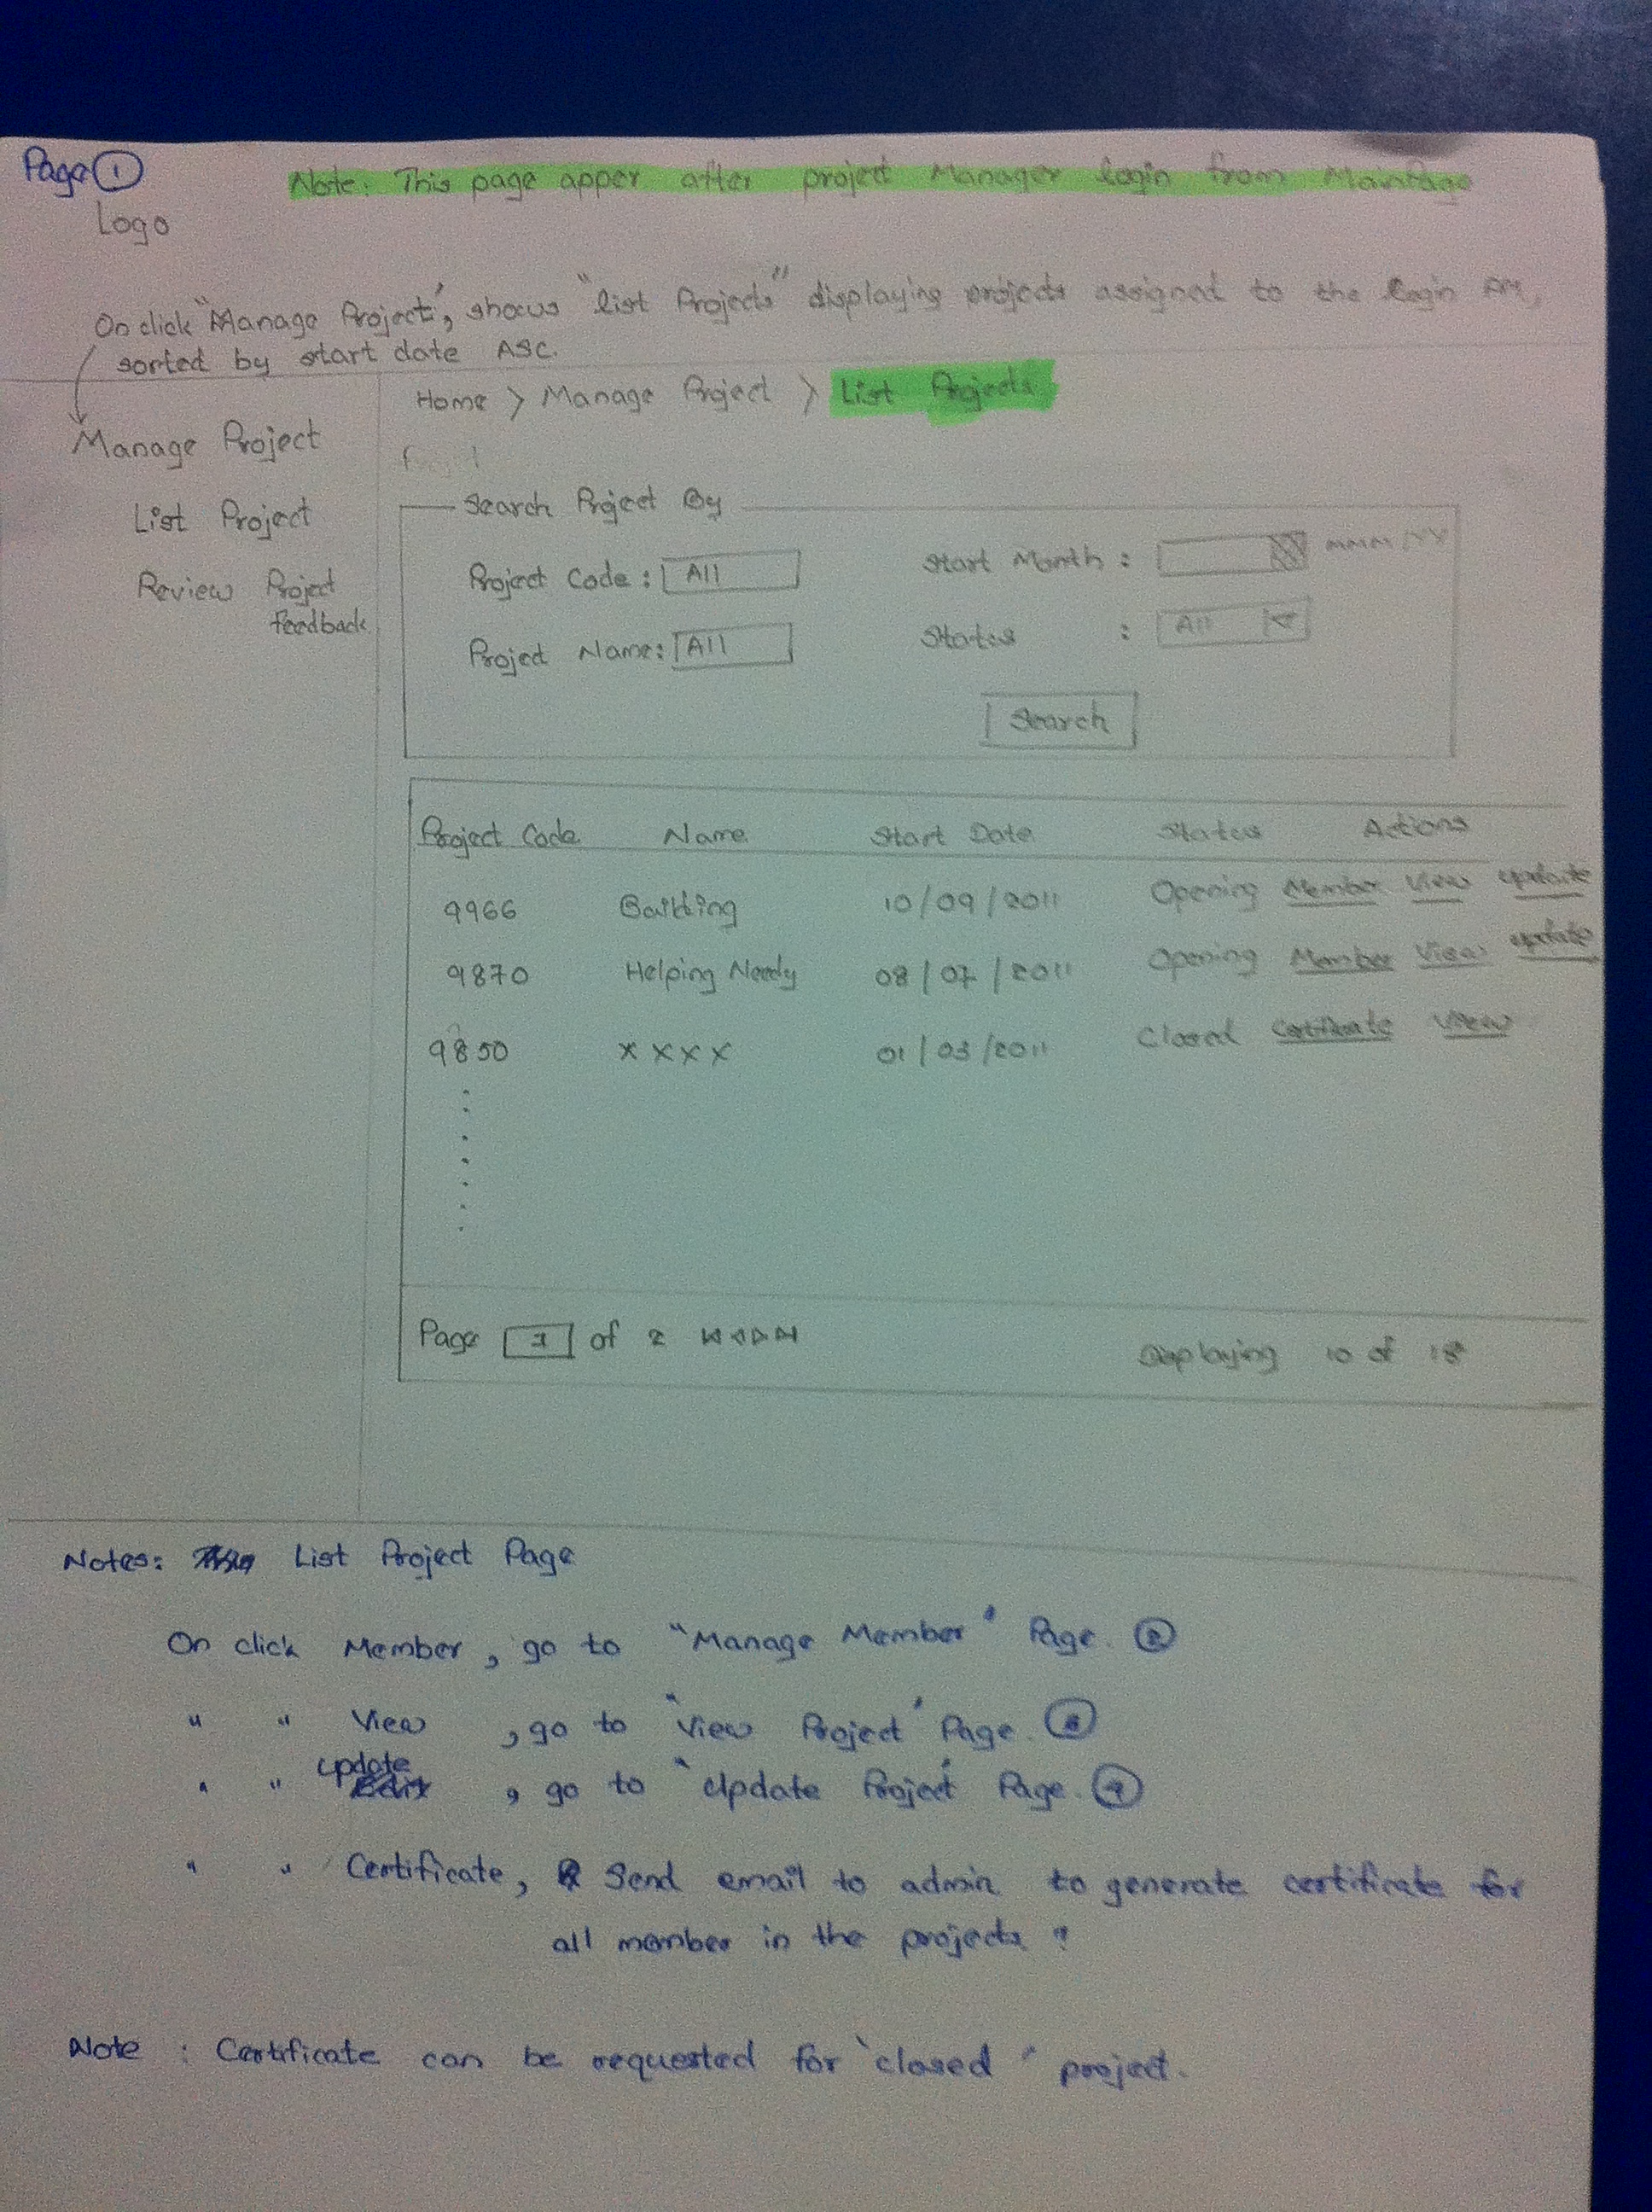 Page 1
Note: This page apper after project Manager login from
Logo
On click "Manage Project", shows "list Projects" displaying projects assigned to the login PM,
sorted by start date ASC.
Home > Manage Project > List Projects
Manage Project
List Project
Review Project
feedback
Search Project By
Project Code: All
Start Month : MMM/YY
Project Name: All
Status : All
Search
Project Code Name Start Date Status Actions
9966 Building 10/09/2011 Opening Member View update
9870 Helping Needy 08/07/2011 Opening Member View update
9850 xxxx 01/03/2011 Closed Certificate View
Page 1 of 2
Displaying 10 of 18
Notes: List Project Page
On click Member, go to "Manage Member" Page.
" " View , go to "View Project" Page.
" " update , go to "Update Project" Page.
" " Certificate, Send email to admin to generate certificate for
all member in the projects ?
Note : Certificate can be requested for 'closed' project.